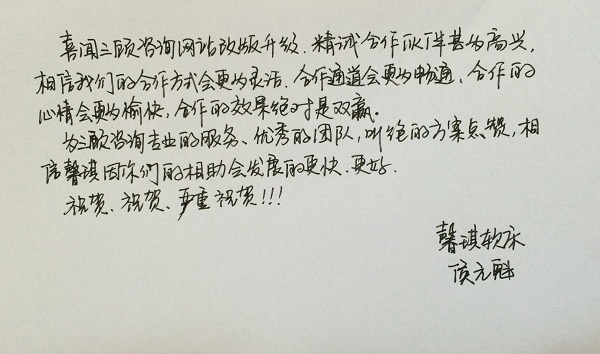 喜闻三顾咨询网站改版升级.精诚合作伙伴甚为高兴,
相信我们的合作方式会更为灵活.合作通道会更为畅通、合作的
心情会更为愉快,合作的效果绝对是双赢.
为三顾咨询专业的服务、优秀的团队,叫绝的方案点赞,相
信馨琪因你们的相助会发展的更快.更好.
祝贺、祝贺、严重祝贺!!!
馨琪软床
侯元